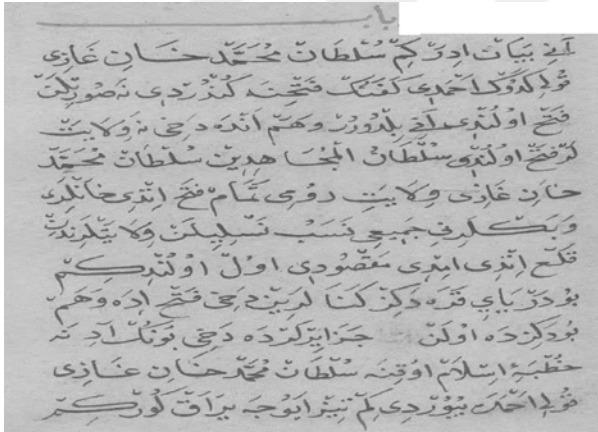 باب
آني بيان ادر كم سلطان محمد خان غازي
قولي كدوك احمدي كفنك فتحنه كندردي نه صورتلن
فتح اولندي اني بلدورر وهم انده دخي نه ولايت
لر فتح اولندي سلطان المجاهدين سلطان محمد
خان غازي ولايت رومي تمام فتح اتدي خانلري
وبكلرني جميع نسب نسليلن ولايتلرندن
قلع اتدي امدي مقصودي اول اولندكم
بو دريايي قره دكز كنارلرين دخي فتح ايده وهم
بو دكزده اولن جزايرلرده دخي بونك آدنه
خطبه اسلام اوقنه سلطان محمد خان غازي
قولي احمده بيوردي كم تيز ايوجه يراق كورسكم